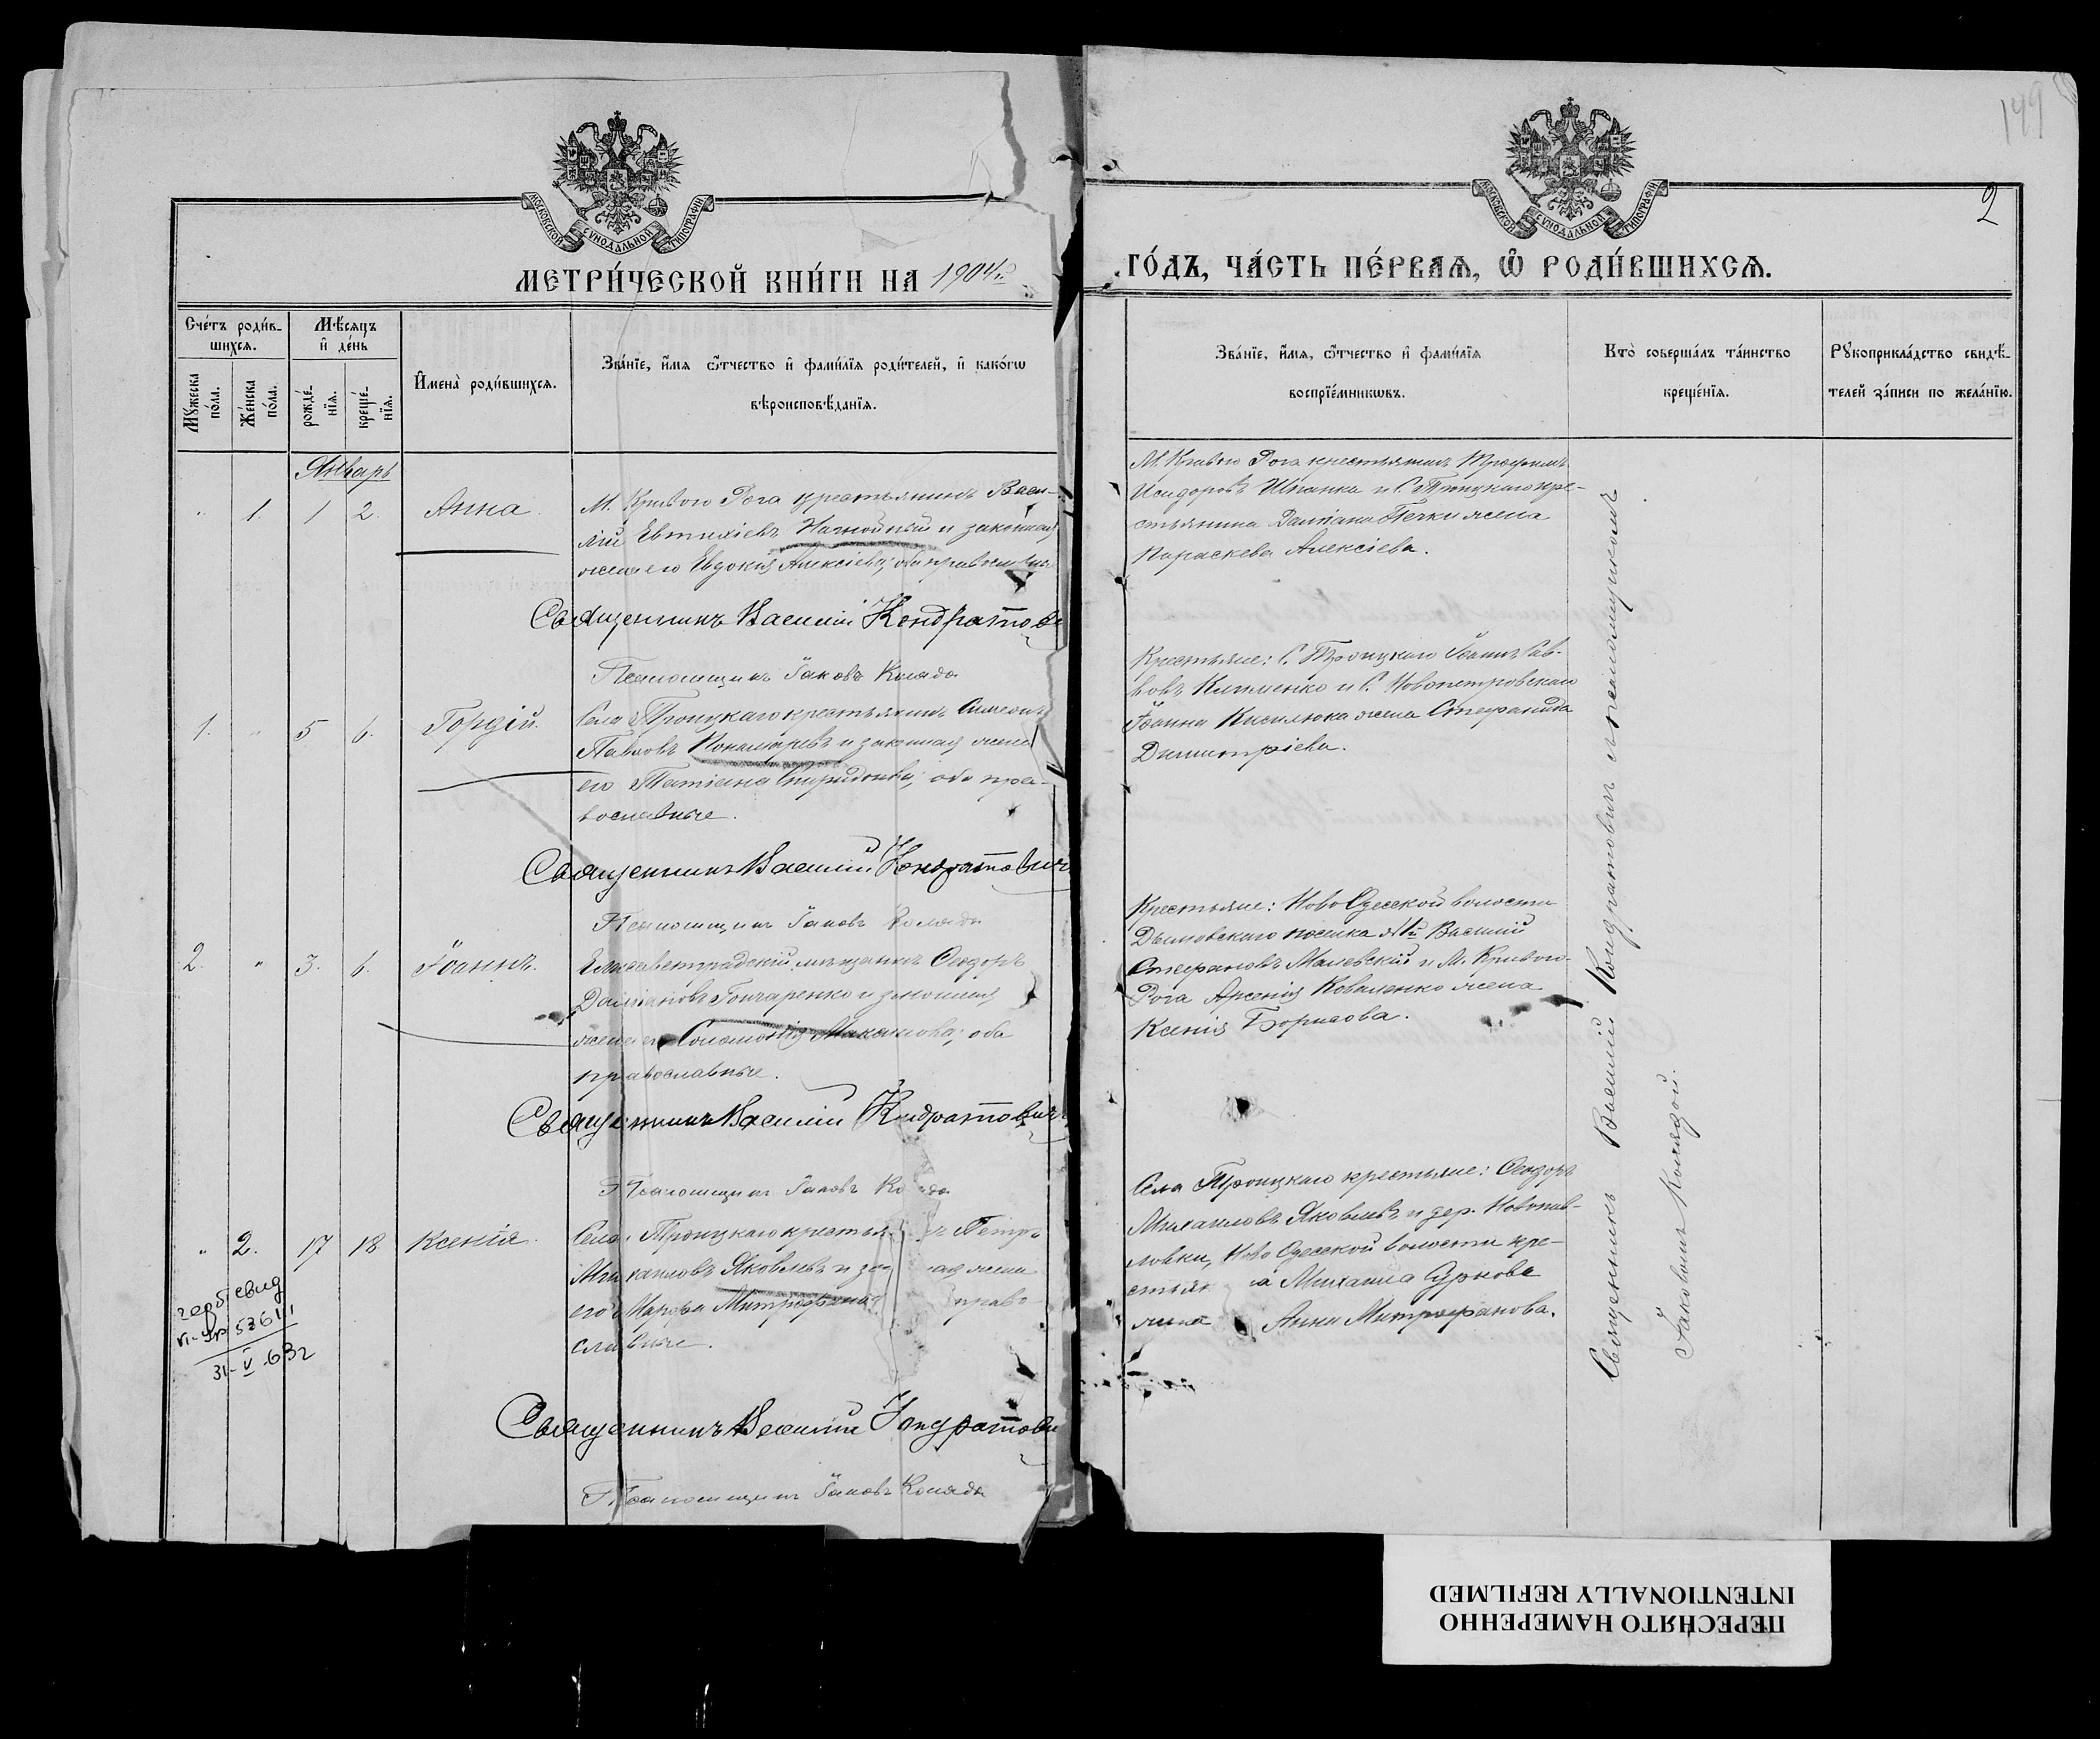 149
2
МОСКОВСКОЙ СѴНОДАЛЬНОЙ ТИПОГРАФІИ
МОСКОВСКОЙ СѴНОДАЛЬНОЙ ТИПОГРАФІИ
МЕТРИ́ЧЕСКОЙ КНИ́ГИ НА 1904й
ГО́ДЪ, ЧА́СТЬ ПЕ́РВАѦ, Ѽ РОДИ́ВШИХСѦ.
Сче́тъ роди́в-
шихсѧ.
Мꙋ́жеска
по́ла.
Же́нска
по́ла.
Мѣ́сѧцъ
и҆ де́нь
рожде́-
нїѧ.
креще́-
нїѧ.
И҆мена̀ роди́вшихсѧ.
Зва́нїе, и҆́мѧ ѻ҆́тчество и҆ фами́лїѧ роди́телей, и҆ како́гѡ
вѣроисповѣ́данїѧ.
Зва́нїе, и҆́мѧ, ѻ҆́тчество и҆ фами́лїѧ
воспрїе́мникѡвъ.
Кто̀ соверша́лъ та́инство
креще́нїѧ.
Рꙋкоприкла́дство свидѣ́-
телей за́писи по жела́нїю.
Январь
" 1. 1 2. Анна.
М. Кривого Рога крестьянинъ Васи-
лій Евтихіевъ и законная
жена его Евдокія Алексіева; оба православные
Священникъ Василій Кондратови
Псаломщикъ Іаковъ Коляда
М. Кривого Рога крестьянинъ Трофимъ
Исидоровъ Шпанка и С. Троицкаго кре-
стьянина Даміана Печки жена
Параскева Алексіева.
1. " 5 6. Гордій.
Села Троицкаго крестьянинъ Симеонъ
Павловъ и законная жена
его Татіана Спиридонова; оба пра-
вославные.
Священникъ Василій Кондратович
Псаломщикъ Іаковъ Коляда
Крестьяне: С. Троицкаго Іоаннъ Сав-
вовъ Клименко и С. Новопетровскаго
Іоанна Киселюка жена Стефанида
Димитріева.
2. " 3. 6. Іоаннъ.
Елисаветградскій мѣщанинъ Ѳеодоръ
Даміановъ Гончаренко и законная
жена его Соломонія; оба
православные.
Священникъ Василій Кондратовичъ
Псаломщикъ Іаковъ Ко да
Крестьяне: НовоОдесской волости
Дымовскаго поселка №1й Василій
Стефановъ Малевскій и М. Кривого-
Рога Арсенія Коваленко жена
Ксенія Борисова.
" 2. 17 18. Ксенія.
Села Троицкаго крестья нъ Петръ
Михаиловъ Яковлевъ и за ная жена
его Марѳа Митрофанова право-
славные.
Священникъ Василій Кондратови
Псаломщикъ Іаковъ Коляда
Села Троицкаго крестьяне: Ѳеодоръ
Михаиловъ Яковлевъ и дер. Новопав-
ловки, Ново Одесской волости кре-
стьян а Михаила Суркова
жена Анна Митрофанова.
Священникъ Василій Кондратовичъ съ псаломщикомъ
Іаковомъ Колядой.
31-V-63г
ПЕРЕСНЯТО НАМЕРЕННО
INTENTIONALLY REFILMED